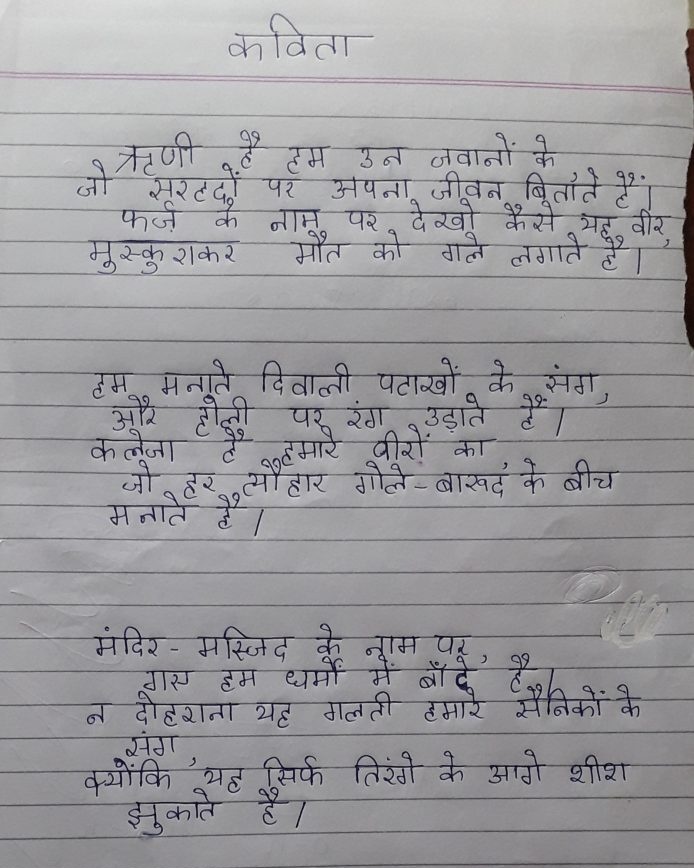 कविता
ऋणी है हम उन जवानों के,
जो सरहदों पर अपना जीवन बिताते हैं।
फर्ज के नाम पर देखो कैसे यह वीर,
मुस्कुराकर मौत को गले लगाते है।
हम मनाते दिवाली पटाखों के संग,
और होली पर रंग उड़ाते हैं।
कलेजा है हमारे वीरों का,
जो हर त्यौहार गोले-बारूद के बीच
मनाते है।
मंदिर-मस्जिद के नाम पर,
गए हम धर्मों में बाँटे है।
न दोहराना यह गलती हमारे सैनिकों के
संग,
क्योंकि यह सिर्फ तिरंगे के आगे शीश
झुकाते है।